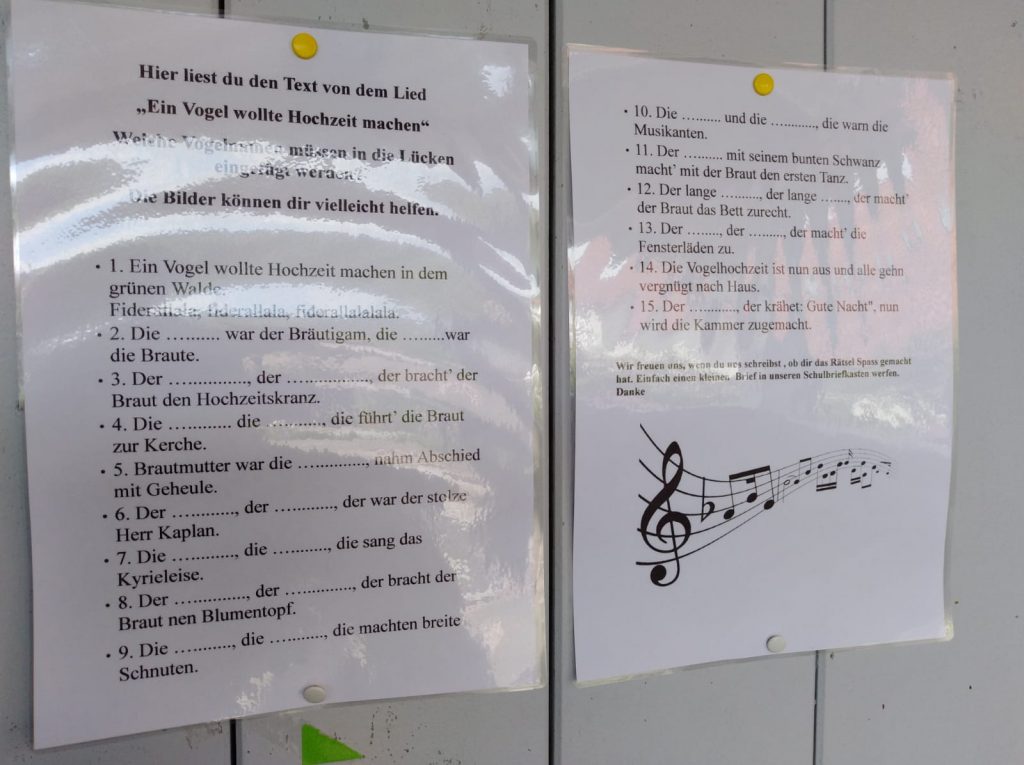 Hier liest du den Text von dem Lied
„Ein Vogel wollte Hochzeit machen“
Welche Vogelnamen müssen in die Lücken
eingefügt werden?
Die Bilder können dir vielleicht helfen.
• 1. Ein Vogel wollte Hochzeit machen in dem
grünen Walde.
Fiderallala, fiderallala, fiderallalalala.
• 2. Die ………. war der Bräutigam, die ………war
die Braute.
• 3. Der ……………, der ……………, der bracht’ der
Braut den Hochzeitskranz.
• 4. Die ………… die …………, die führt’ die Braut
zur Kerche.
• 5. Brautmutter war die …………, nahm Abschied
mit Geheule.
• 6. Der …………, der …………, der war der stolze
Herr Kaplan.
• 7. Die …………, die …………, die sang das
Kyrieleise.
• 8. Der …………, der …………, der bracht der
Braut nen Blumentopf.
• 9. Die …………, die …………, die machten breite
Schnuten.
• 10. Die ………. und die …………, die warn die
Musikanten.
• 11. Der ………. mit seinem bunten Schwanz
macht’ mit der Braut den ersten Tanz.
• 12. Der lange ………, der lange ……., der macht’
der Braut das Bett zurecht.
• 13. Der …….., der ………, der macht’ die
Fensterläden zu.
• 14. Die Vogelhochzeit ist nun aus und alle gehn
vergnügt nach Haus.
• 15. Der …………, der krähet: Gute Nacht", nun
wird die Kammer zugemacht.
Wir freuen uns, wenn du uns schreibst , ob dir das Rätsel Spass gemacht
hat. Einfach einen kleinen Brief in unseren Schulbriefkasten werfen.
Danke